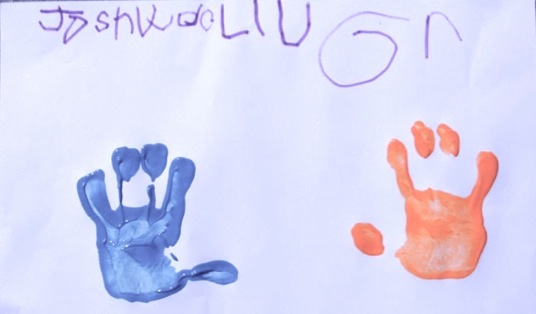 JoshWaoLIU Gr